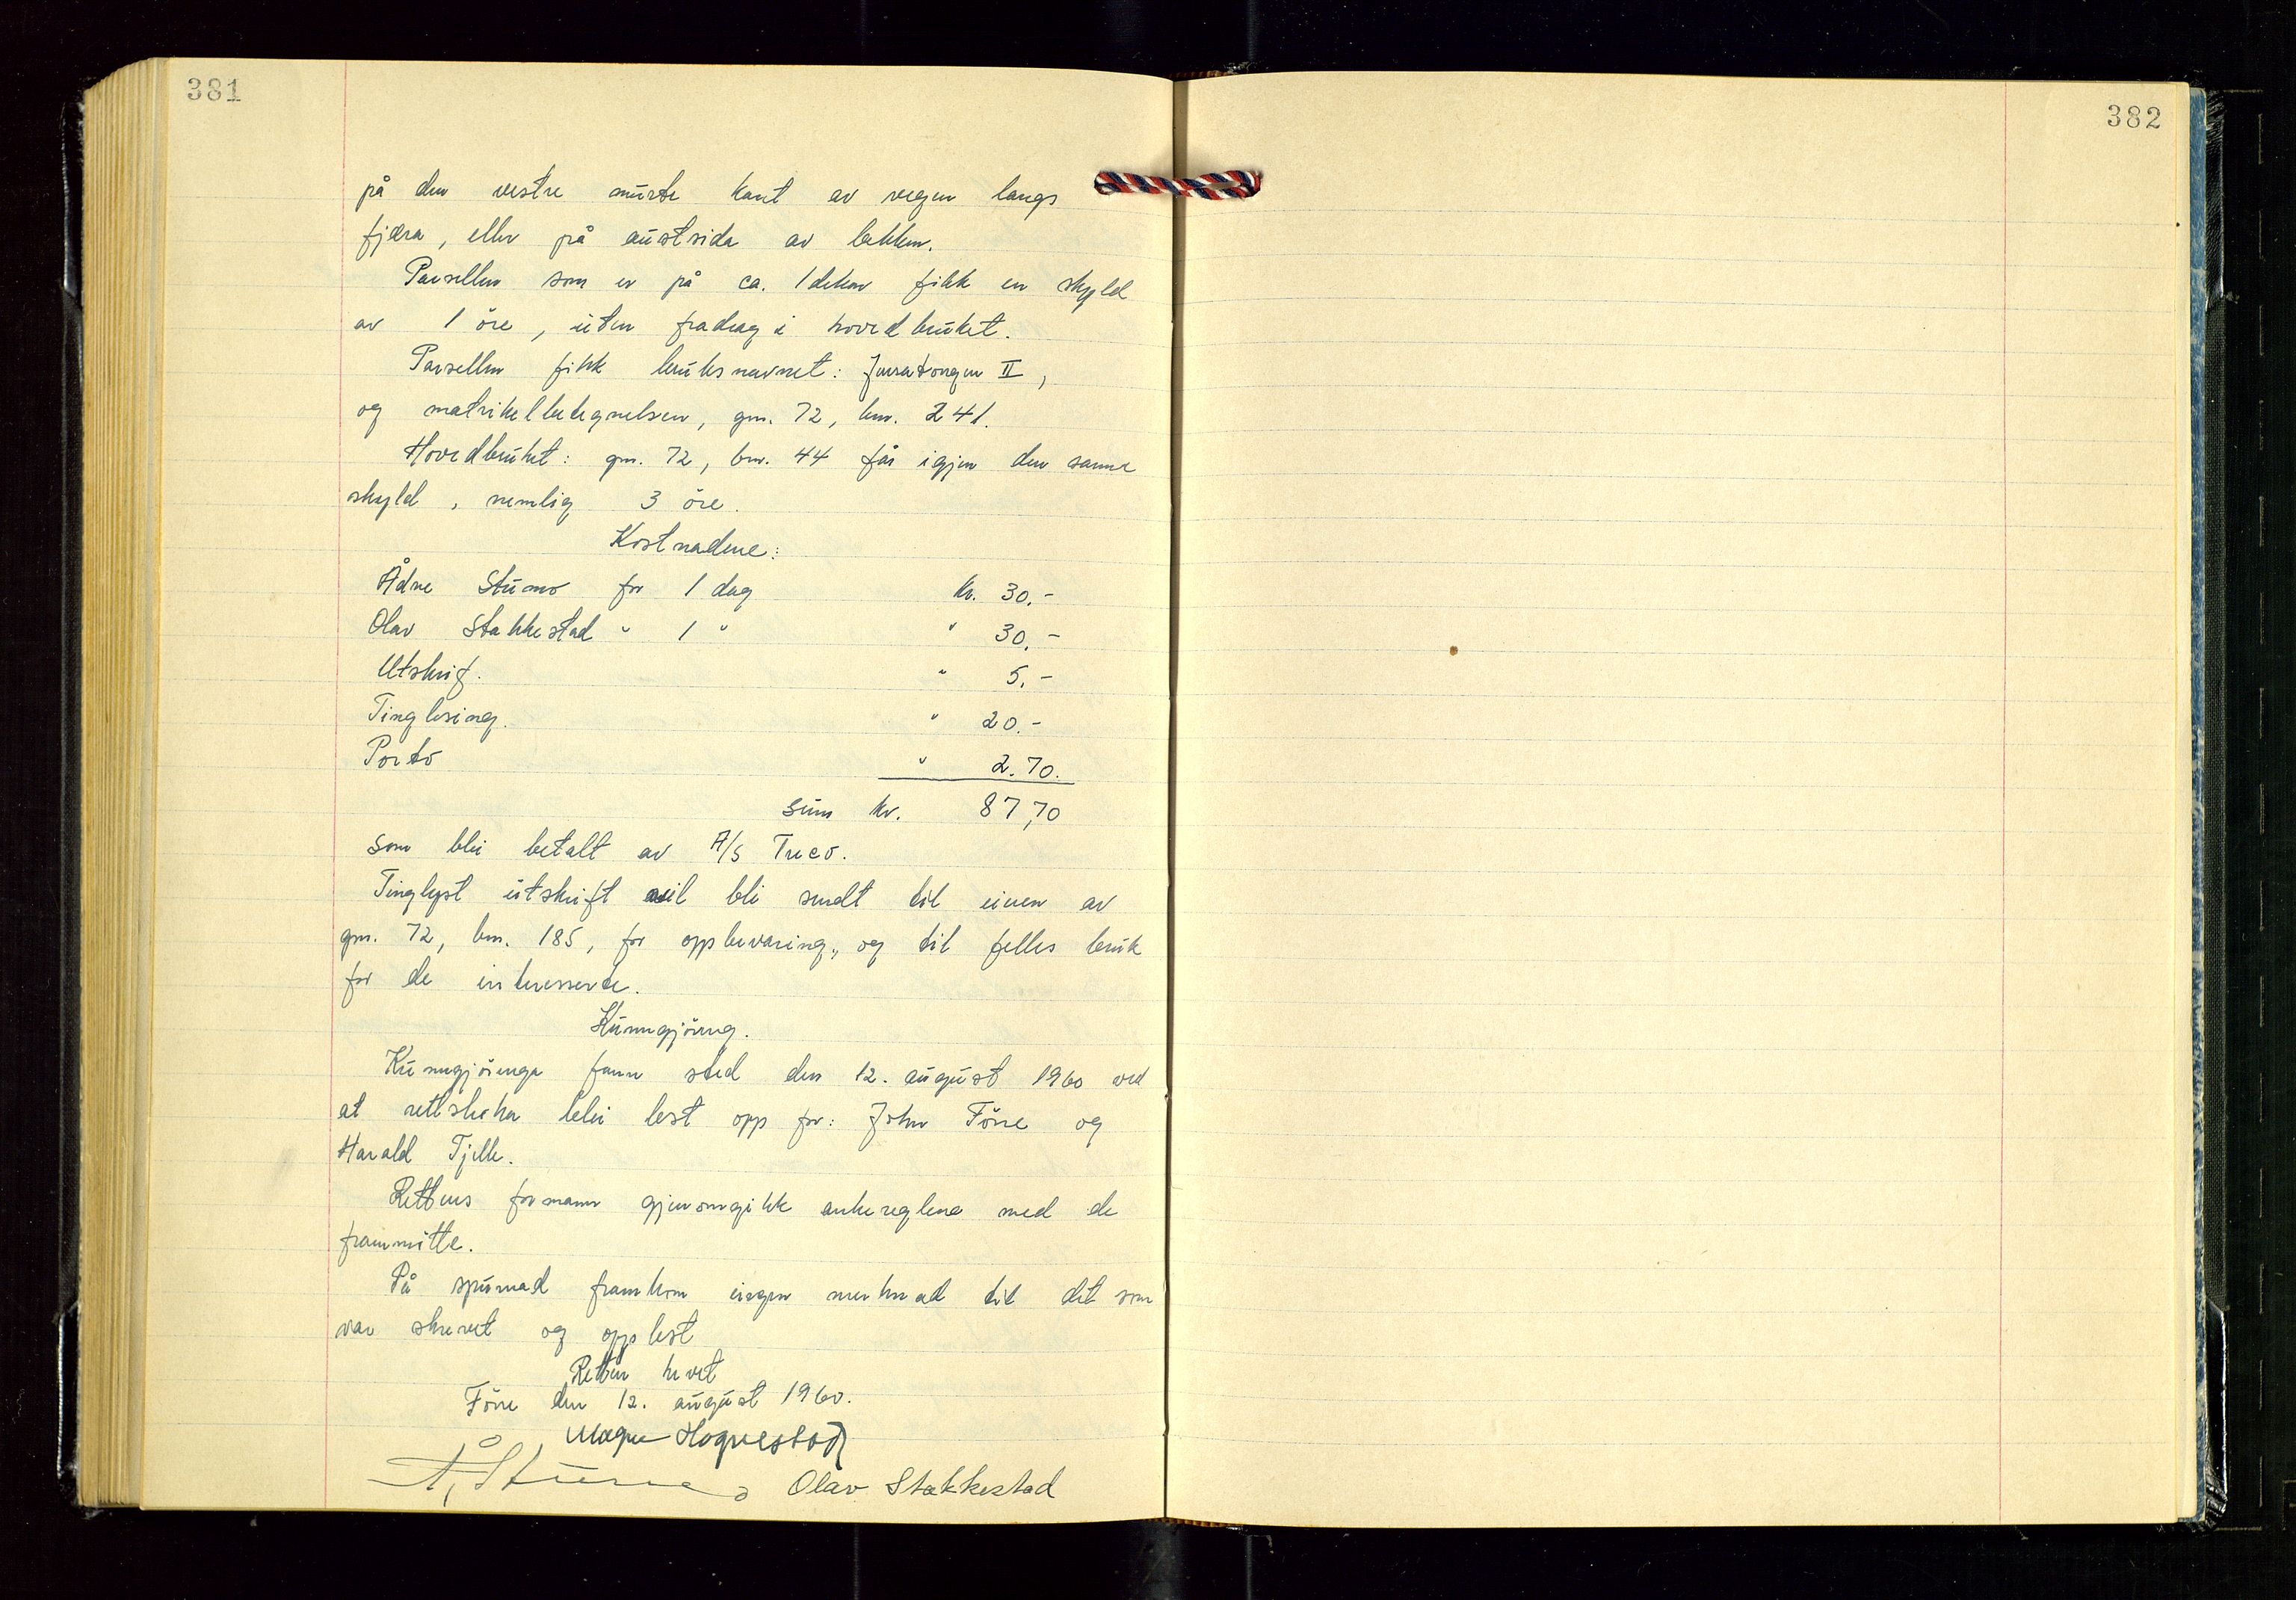 381
382
på den vestre murte kant av vegen langs
fjæra, eller på austsida av bekken.
Parsellen som er på ca. 1 dekar fikk en skyld
av 1 öre, uten fradrag i hovedbruket.
Parsellen fikk bruksnavnet: Furutongen II,
og matrikelbetegnelsen, gnr. 72, bnr. 241.
Hovedbruket: gnr. 72, bnr. 44 får igjen den samme
skyld, nemlig 3 öre.
Kostnadene:
Ådne Stumo for 1 dag kr. 30.-
Olav Stakkestad " 1 " " 30.-
Utskrif. " 5.-
Tinglesing. " 20.-
Porto " 2.70.
sum kr. 87,70
som blei betalt av A/S Treco.
Tinglyst utskrift vil bli sendt til eieren av
gnr. 72, bnr. 185, for oppbevaring, og til felles bruk
for de interesserte.
Kunngjöring.
Kunngjöringa fann sted den 12. august 1960 ved
at rettsboka blei lest opp for: John Före og
Harald Tjelle.
Rettens formann gjenomgikk ankereglene med de
frammötte.
På spurnad framkom ingen merknad til det som
var skrevet og opplest
Retten hevet
Före den 12. august 1960.
Magne Hognestad
Å. Stumo Olav Stakkestad